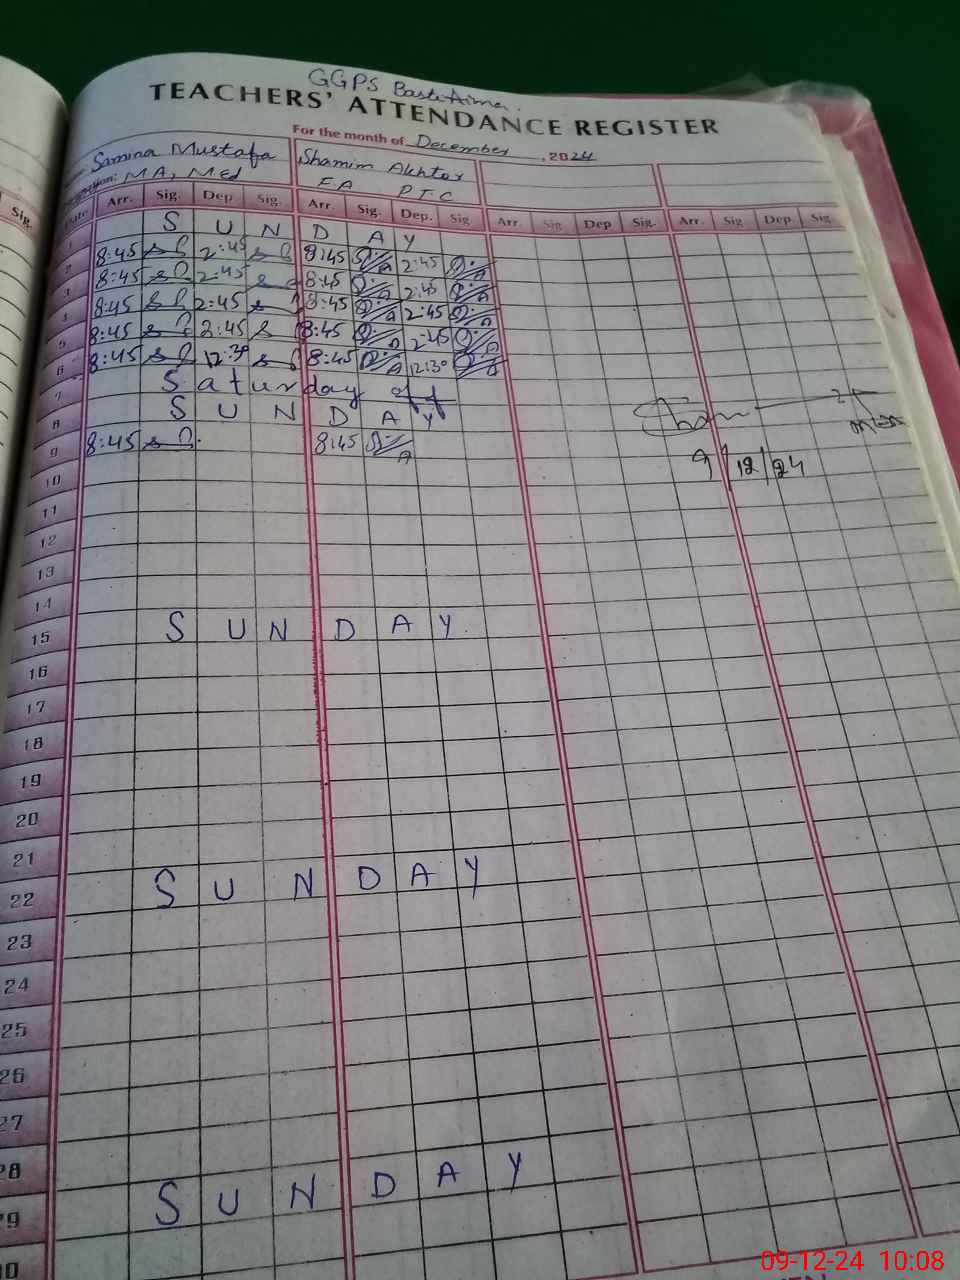 GGPS Basti Aima.
TEACHERS' ATTENDANCE REGISTER
For the month of December, 2024
Samina Mustafa Shamim Akhter
MA, MEd F.A P.T.C
Sig. Date Arr. Sig. Dep. Sig. Arr. Sig. Dep. Sig Arr. Sig Dep Sig. Arr. Sig Dep. Sig.
1 S U N D A Y
2 8:45 2:45 8:45 2:45
3 8:45 2:45 8:45 2:45
4 8:45 2:45 8:45 2:45
5 8:45 2:45 8:45 2:45
6 8:45 12:30 8:45 12:30
7 Saturday off
8 S U N D A Y
9 8:45 8:45
9/12/24
10
11
12
13
14
15 S U N D A Y
16
17
18
19
20
21
22 S U N D A Y
23
24
25
26
27
28
29 S U N D A Y
30
09-12-24 10:08